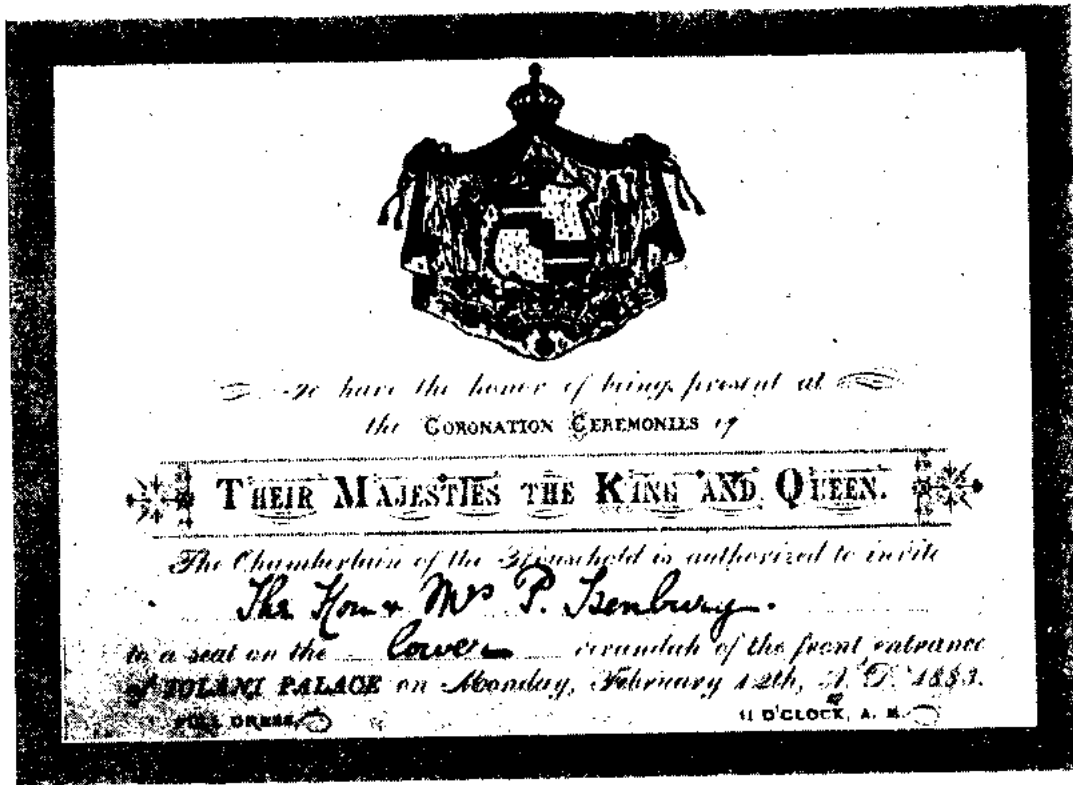 To have the honor of being present at
the CORONATION CEREMONIES of
THEIR MAJESTIES THE KING AND QUEEN.
The Chamberlain of the Household is authorized to invite
The Hon & Mrs P. Isenburg.
to a seat on the lower verandah of the front entrance
of IOLANI PALACE on Monday, February 12th, A.D. 1883.
FULL DRESS. 11 O'CLOCK, A. M.